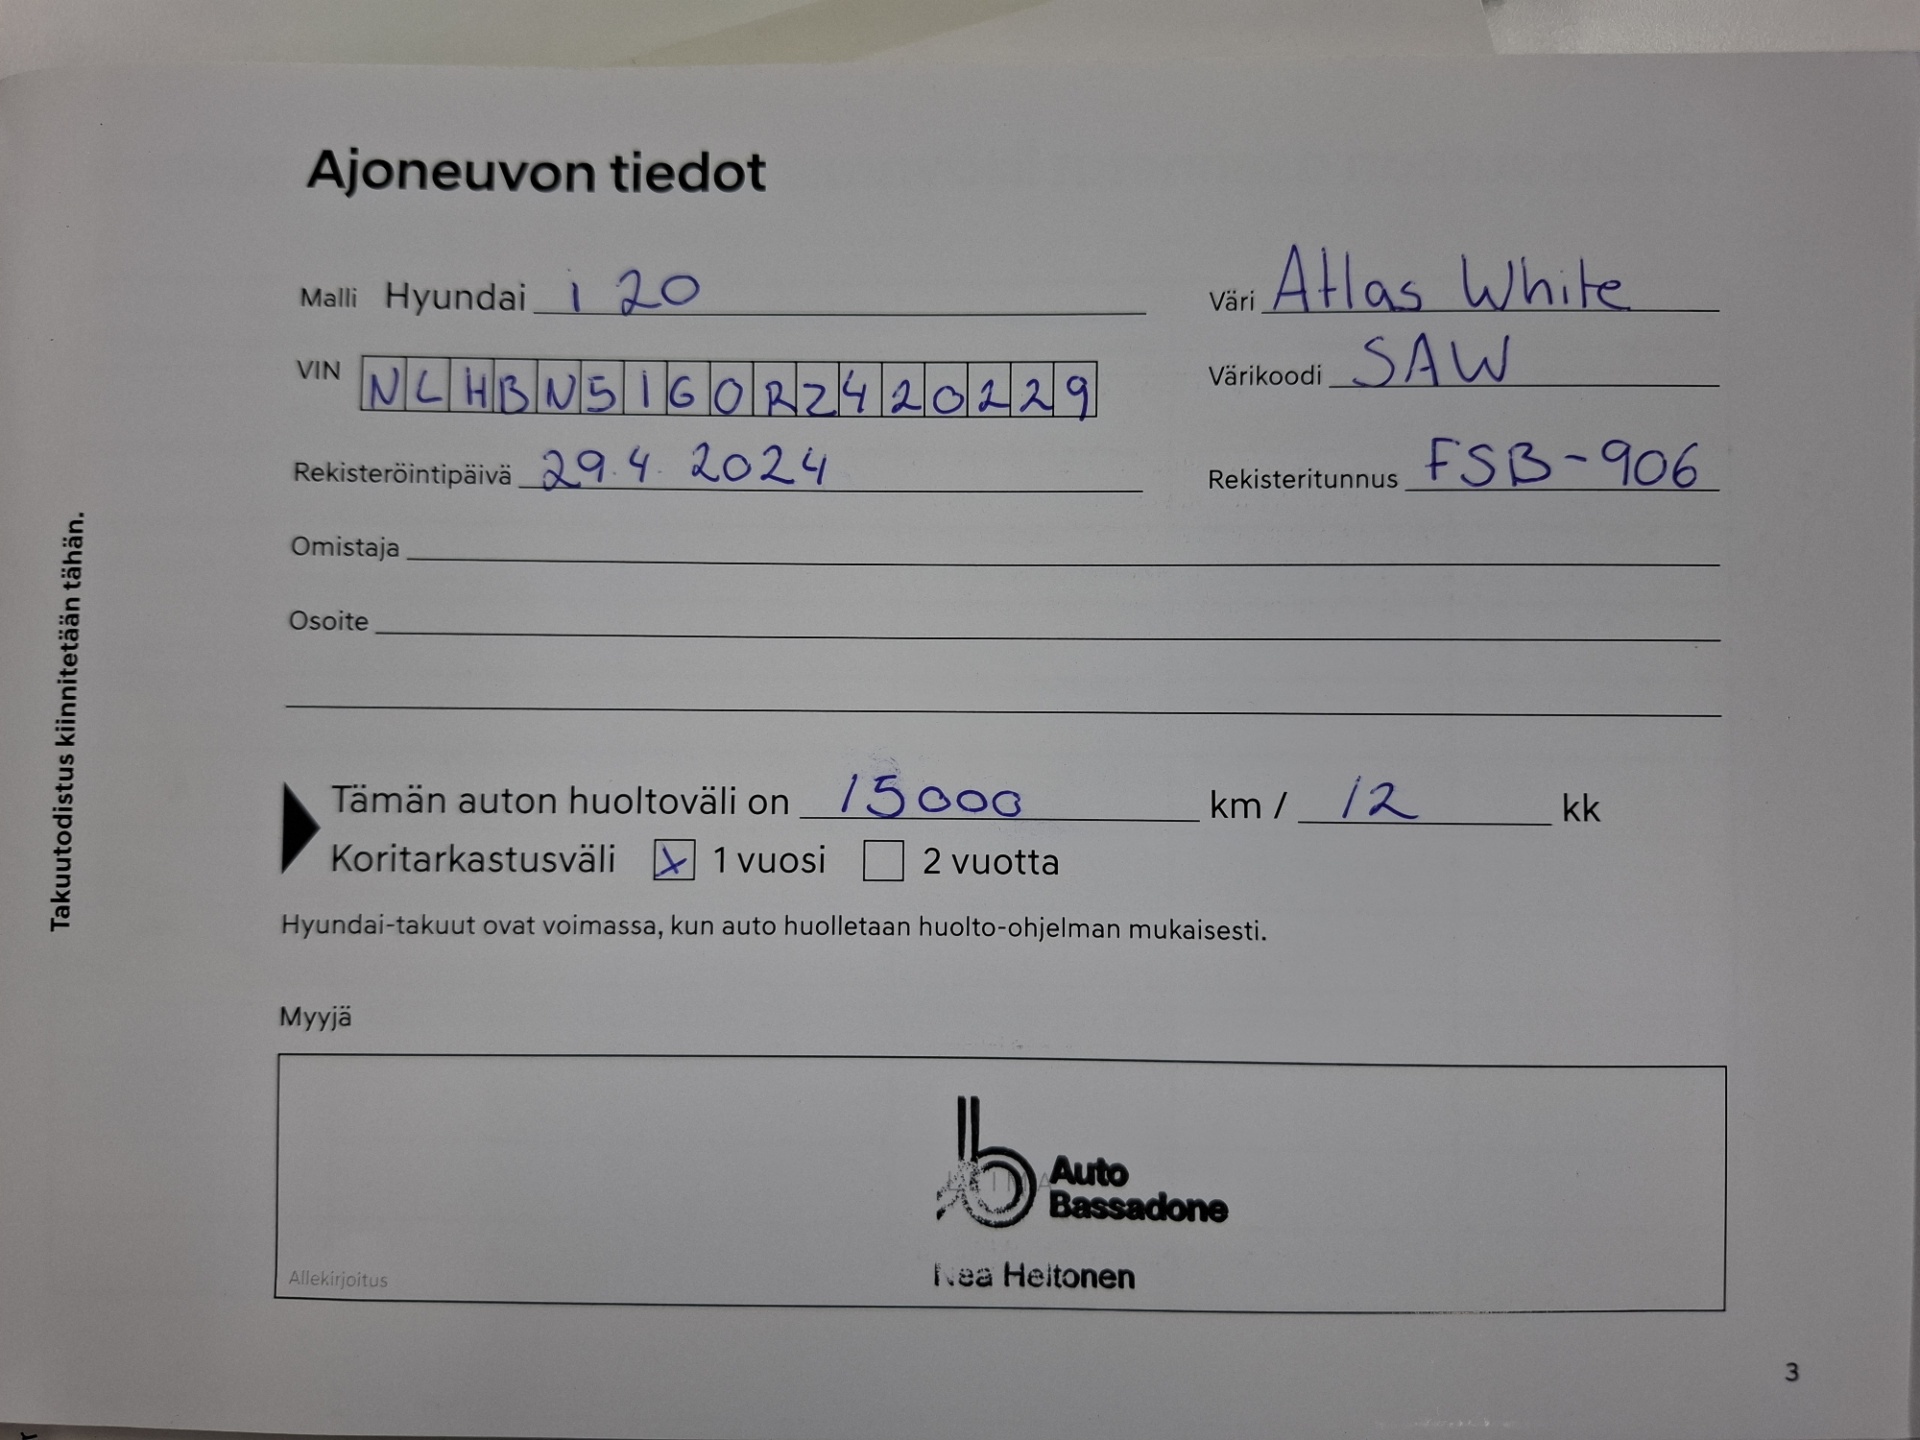 Ajoneuvon tiedot
Malli Hyundai i 20
Väri Atlas White
VIN NLHBN51G0RZ420229
Värikoodi SAW
Rekisteröintipäivä 29.4. 2024
Rekisteritunnus FSB-906
Omistaja
Osoite
Takuutodistus kiinnitetään tähän.
Tämän auton huoltoväli on 15000 km / 12 kk
Koritarkastusväli x 1 vuosi 2 vuotta
Hyundai-takuut ovat voimassa, kun auto huolletaan huolto-ohjelman mukaisesti.
Myyjä
Auto
Bassadone
Nea Heitonen
Allekirjoitus
3